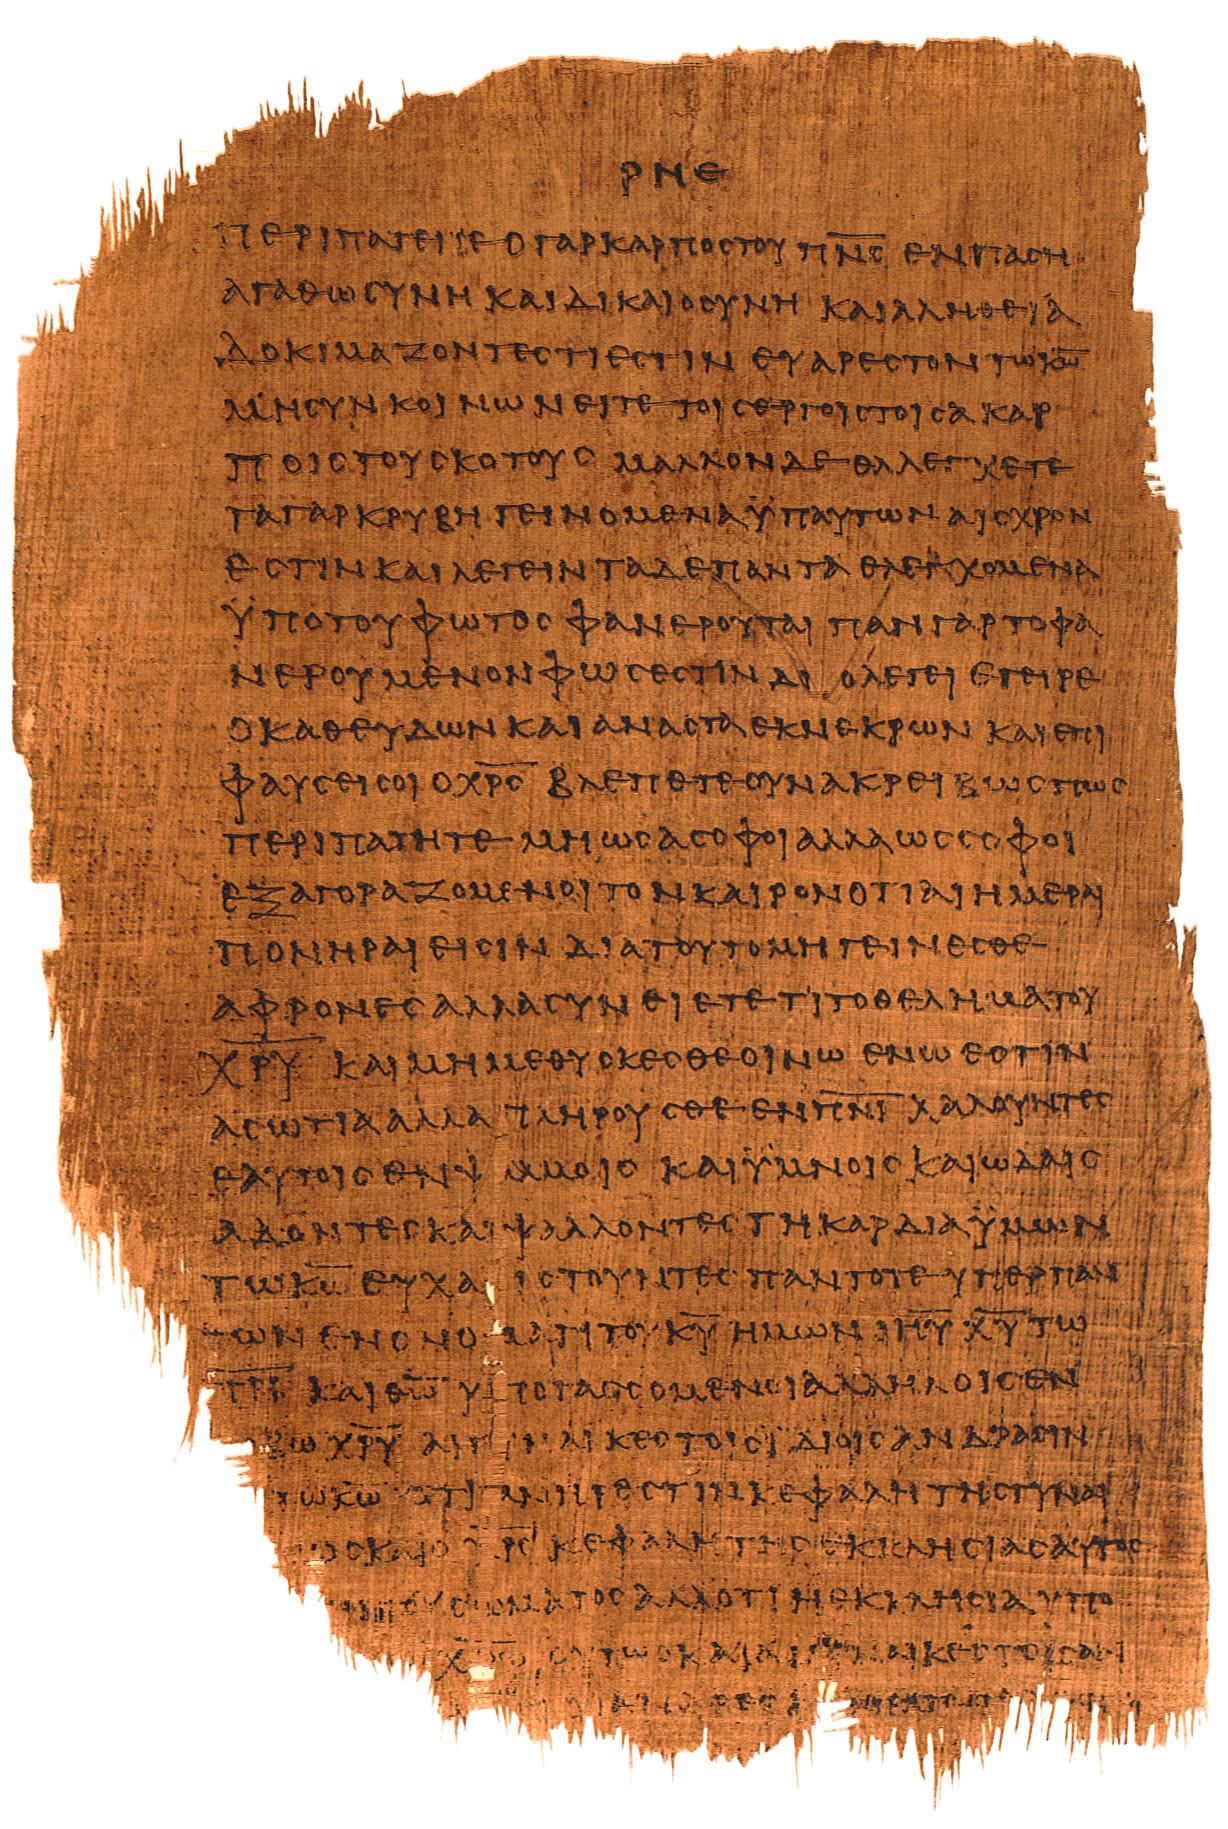 ΡΝΕ
ΠΕΡΙΠΑΤΕΙΤΕ Ο ΓΑΡ ΚΑΡΠΟΣ ΤΟΥ Π̅Ν̅Σ̅ ΕΝ ΠΑΣΗ
ΑΓΑΘΩΣΥΝΗ ΚΑΙ ΔΙΚΑΙΟΣΥΝΗ ΚΑΙ ΑΛΗΘΕΙΑ
ΔΟΚΙΜΑΖΟΝΤΕΣ ΤΙ ΕΣΤΙΝ ΕΥΑΡΕΣΤΟΝ ΤΩ Κ̅Ω̅
ΜΗ ΣΥΝΚΟΙΝΩΝΕΙΤΕ ΤΟΙΣ ΕΡΓΟΙΣ ΤΟΙΣ ΑΚΑΡ
ΠΟΙΣ ΤΟΥ ΣΚΟΤΟΥΣ ΜΑΛΛΟΝ ΔΕ ΕΛΛΕΓΧΕΤΕ
ΤΑ ΓΑΡ ΚΡΥΒΗ ΓΕΙΝΟΜΕΝΑ ΫΠ ΑΥΤΩΝ ΑΙΣΧΡΟΝ
ΕΣΤΙΝ ΚΑΙ ΛΕΓΕΙΝ ΤΑ ΔΕ ΠΑΝΤΑ ΕΛΕΓΧΟΜΕΝΑ
ΫΠΟ ΤΟΥ ΦΩΤΟΣ ΦΑΝΕΡΟΥΤΑΙ ΠΑΝ ΓΑΡ ΤΟ ΦΑ
ΝΕΡΟΥΜΕΝΟΝ ΦΩΣ ΕΣΤΙΝ ΔΙΟ ΛΕΓΕΙ ΕΓΕΙΡΕ
Ο ΚΑΘΕΥΔΩΝ ΚΑΙ ΑΝΑΣΤΑ ΕΚ ΝΕΚΡΩΝ ΚΑΙ ΕΠΙ
ΦΑΥΣΕΙ ΣΟΙ Ο Χ̅Ρ̅Σ̅ ΒΛΕΠΕΤΕ ΟΥΝ ΑΚΡΕΙΒΩΣ ΠΩΣ
ΠΕΡΙΠΑΤΗΤΕ ΜΗ ΩΣ ΑΣΟΦΟΙ ΑΛΛΑ ΩΣ ΣΟΦΟΙ
ΕΞΑΓΟΡΑΖΟΜΕΝΟΙ ΤΟΝ ΚΑΙΡΟΝ ΟΤΙ ΑΙ ΗΜΕΡΑΙ
ΠΟΝΗΡΑΙ ΕΙΣΙΝ ΔΙΑ ΤΟΥΤΟ ΜΗ ΓΕΙΝΕΣΘΕ
ΑΦΡΟΝΕΣ ΑΛΛΑ ΣΥΝΕΙΕΤΕ ΤΙ ΤΟ ΘΕΛΗΜΑ ΤΟΥ
Χ̅Ρ̅Υ̅ ΚΑΙ ΜΗ ΜΕΘΥΣΚΕΣΘΕ ΟΙΝΩ ΕΝ Ω ΕΣΤΙΝ
ΑΣΩΤΙΑ ΑΛΛΑ ΠΛΗΡΟΥΣΘΕ ΕΝ Π̅Ν̅Ι̅ ΧΑΛΟΥΝΤΕΣ
ΕΑΥΤΟΙΣ ΕΝ Ψ ΛΜΟΙΣ ΚΑΙ ΫΜΝΟΙΣ ΚΑΙ ΩΔΑΙΣ
ΑΔΟΝΤΕΣ ΚΑΙ ΨΑΛΛΟΝΤΕΣ ΤΗ ΚΑΡΔΙΑ ΫΜΩΝ
ΤΩ Κ̅Ω̅ ΕΥΧΑ ΙΣΤΟΥΝΤΕΣ ΠΑΝΤΟΤΕ ΥΠΕΡ ΠΑΝ
ΩΝ ΕΝ ΟΝΟ ΜΑΤΙ ΤΟΥ Κ̅Υ̅ ΗΜΩΝ Ι̅Η̅Υ̅ Χ̅Υ̅ ΤΩ
Π̅Ρ̅Ι̅ ΚΑΙ Θ̅Ω̅ ΥΠΟΤΑΣΣΟΜΕΝΟΙ ΑΛΛΗΛΟΙΣ ΕΝ
ΒΩ Χ̅Ρ̅Υ̅ ΑΙ ΓΥΝΑΙΚΕΣ ΤΟΙΣ ΪΔΙΟΙΣ ΑΝΔΡΑΣΙΝ
ΤΩ Κ̅Ω̅ ΟΤΙ ΑΝΗΡ ΕΣΤΙΝ ΚΕΦΑΛΗ ΤΗΣ ΓΥΝΑΙ
ΟΣ ΚΑΙ Ο Χ̅Ρ̅Σ̅ ΚΕΦΑΛΗ ΤΗΣ ΕΚΚΛΗΣΙΑΣ ΑΥΤΟΣ
ΤΟΥ ΣΩΜΑΤΟΣ ΑΛΛ ΟΤΙ Η ΕΚΚΛΗΣΙΑ ΥΠΟ
Χ̅Ρ̅Ω̅ ΟΥΤΩΣ ΚΑΙ ΑΙ ΓΥΝΑΙΚΕΣ ΤΟΙΣ ΑΝ